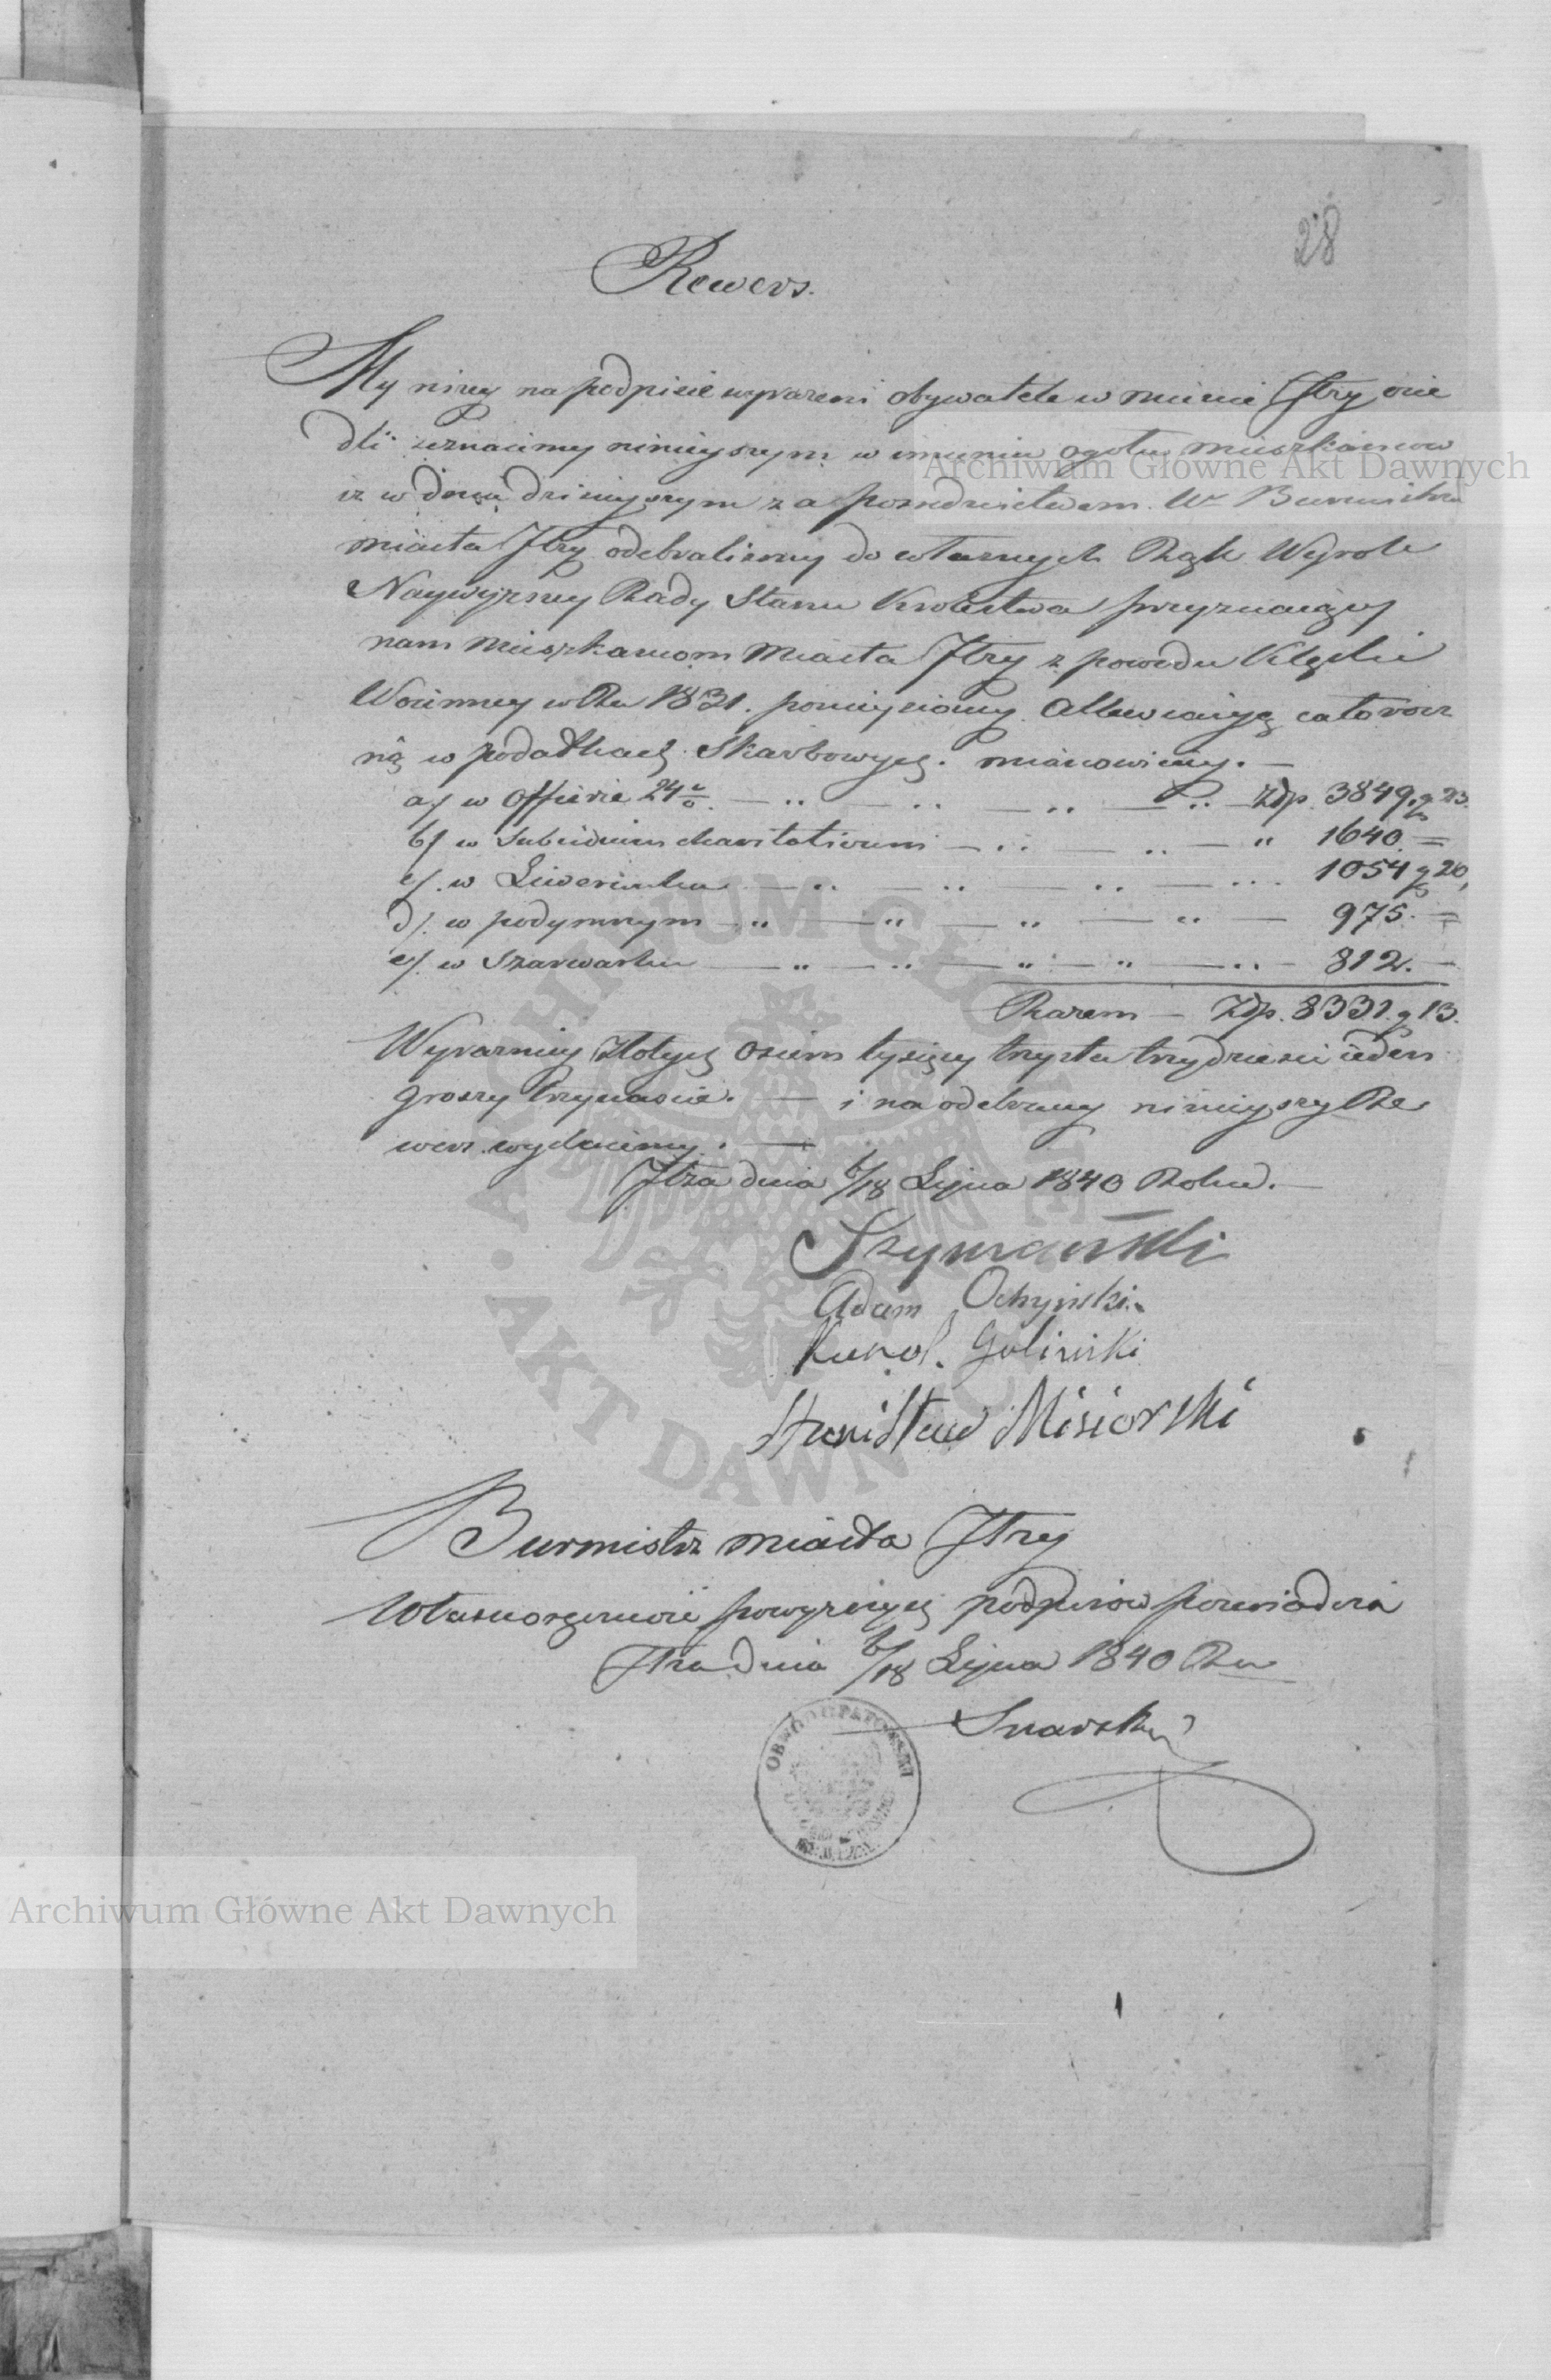 28
Rewers.
My niżey na podpisie wyrażeni obywatele w mieście Iłży osie
dli zeznaiemy ninieyszym w imieniu ogółu mieszkańców
iż w dniu dzisieyszym za pośrednictwem W° Burmistrza
miasta Iłży odebraliśmy do własnych Rąk Wyrok
Naywyższey Rady Stanu Królestwa przyznaiący
nam mieszkańcom Miasta Iłży z powodu Klęski
Woienney w Ru 1831. poniesioney Allewiacyą całorocz
ną w podatkach Skarbowych. mianowicie. —
a/ w Offierze 24 — „ — „ — „ — „ — Złp. 3849. g 23.
b/ w Subsidium charitativum — „ — „ — „ 1640. =
c/. w Liwerunku — „ — „ — „ — „ 1054 g 20,
d/. w podymnym — „ — „ — „ — „ — 975. =
e/. w Szarwarku — „ — „ — „ — „ — „ — 812. —
Razem — Złp. 8331. g 13.
Wyraźniey Złotych Osiem tysięcy trzysta trzydzieści ieden
groszy trzynaście. — i na odebrany ninieyszy Re
wers wydaiemy. —
Iłża dnia 6/18 Lipca 1840 Roku. —
Szymański
Adam Ochyński.
Karol. Goliński
Stanisław Misiorski
Burmistrz miasta Iłży
Własnoręczność powyższych podpisów poświadcza
Iłża dnia 6/18 Lipca 1840 Ru
Snarski
OBWÓD OPATOWSKI
Archiwum Główne Akt Dawnych
Archiwum Główne Akt Dawnych
ARCHIWUM GŁÓWNE AKT DAWNYCH